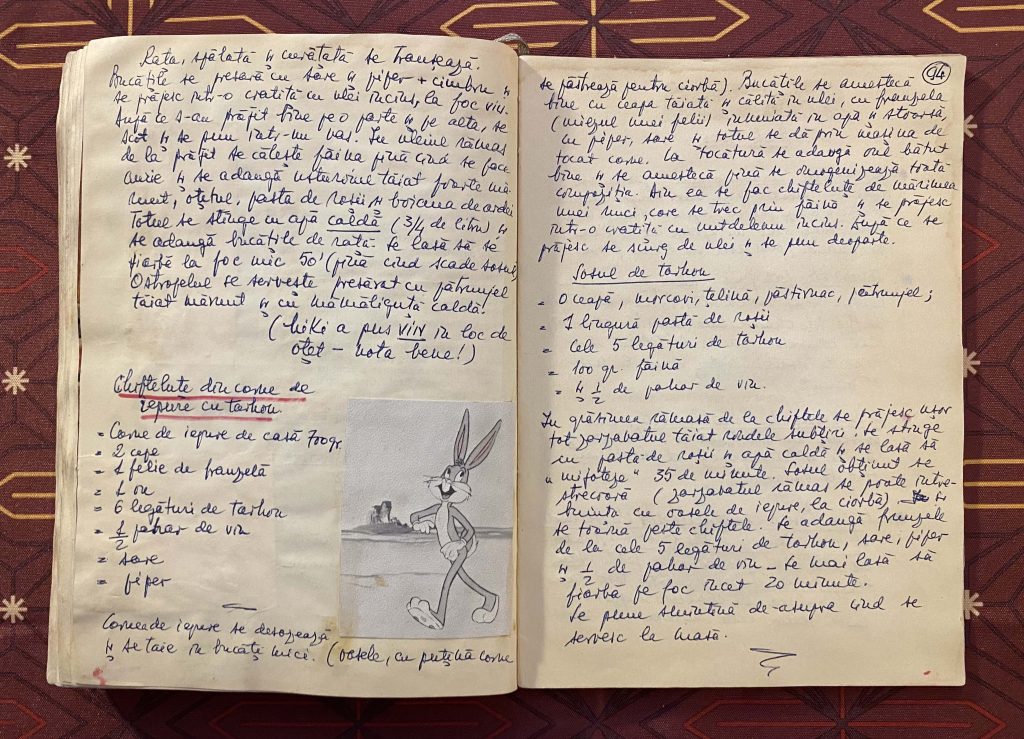 Rața, spălată și curățată se tranșează.
Bucățile se presară cu sare și piper + cimbru și
se prăjesc într-o cratiță cu ulei încins, la foc viu.
După ce s-au prăjit bine pe o parte și pe alta, se
scot și se pun într-un vas. În uleiul rămas
de la prăjit se călește făina pînă cînd se face
aurie și se adaugă usturoiul tăiat foarte mă-
runt, oțetul, pasta de roșii și boiaua de ardei
Totul se stinge cu apă caldă (3/4 de litru) și
se adaugă bucățile de rață. Se lasă să se
fiarbă la foc mic 50' (pînă cînd scade sosul)
Ostropelul se servește presărat cu pătrunjel
tăiat mărunt și cu mămăliguță caldă.
(Kiki a pus VIN în loc de
oțet - nota bene!)
Chifteluțe din carne de
iepure cu tarhon.
= Carne de iepure de casă 700 gr.
= 2 cepe
= 1 felie de franzelă
= 1 ou
= 6 legături de tarhon
= 1/2 pahar de vin
= sare
= piper
Carnea de iepure se dezosează
și se taie în bucăți mici. (oasele, cu puțină carne
94
se păstrează pentru ciorbă). Bucățile se amestecă
bine cu ceapa tăiată și călită în ulei, cu franzela
(miezul unei felii) înmuiată în apă și stoarsă,
cu piper, sare și totul se dă prin mașina de
tocat carne. La tocătură se adaugă oul bătut
bine și se amestecă pînă se omogenizează toată
compoziția. Din ea se fac chifteluțe de mărimea
unei nuci, care se trec prin făină și se prăjesc
într-o cratiță cu untdelemn încins. După ce se
prăjesc se scurg de ulei și se pun deoparte.
Sosul de tarhon
= O ceapă, morcovi, țelină, păstîrnac, pătrunjel;
= 1 lingură pastă de roșii
= cele 5 legături de tarhon
= 100 gr. făină
= și 1/2 de pahar de vin.
În grăsimea rămasă de la chiftele se prăjesc ușor
tot zarzavatul tăiat rondele subțiri, se stinge
cu pastă de roșii și apă caldă și se lasă să
"mijoteze" 35 de minute. Sosul obținut se
strecoară (zarzavatul rămas se poate între-
buința cu oasele de iepure, la ciorbă) și
se toarnă peste chiftele. Se adaugă frunzele
de la cele 5 legături de tarhon, sare, piper
și 1/2 de pahar de vin - se mai lasă să
fiarbă pe foc încet 20 minute.
Se pune smîntînă de-asupra cînd se
servesc la masă.